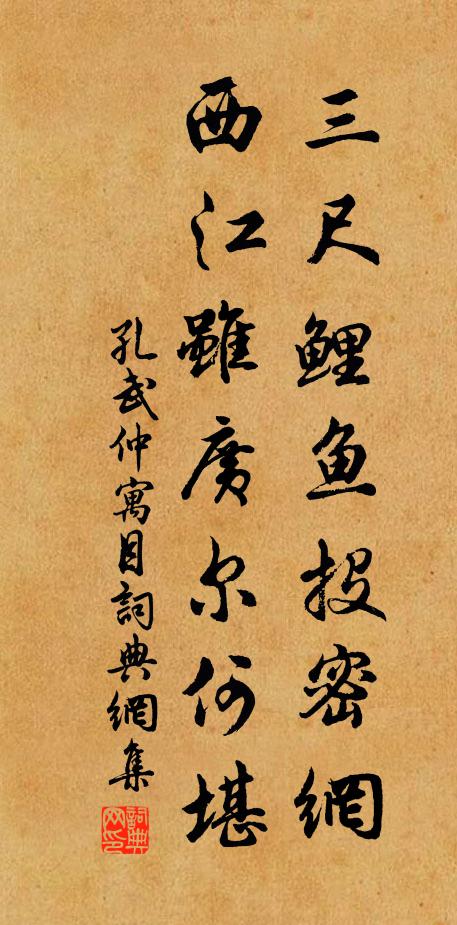 三尺鲤鱼投密網
西江雖廣尔何堪
孔武仲寓目詞典網集
詞典网印